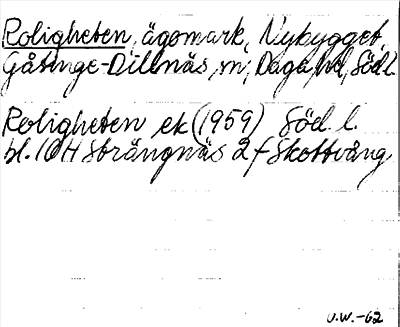 Roligheten, ägomark, Nybygget,
Gåsinge-Dillnäs, sn, Daga, hd, Södl.
Roligheten ek (1959) Södl. l.
bl. 10H Strängnäs 2f Skottvång
U.W.-62